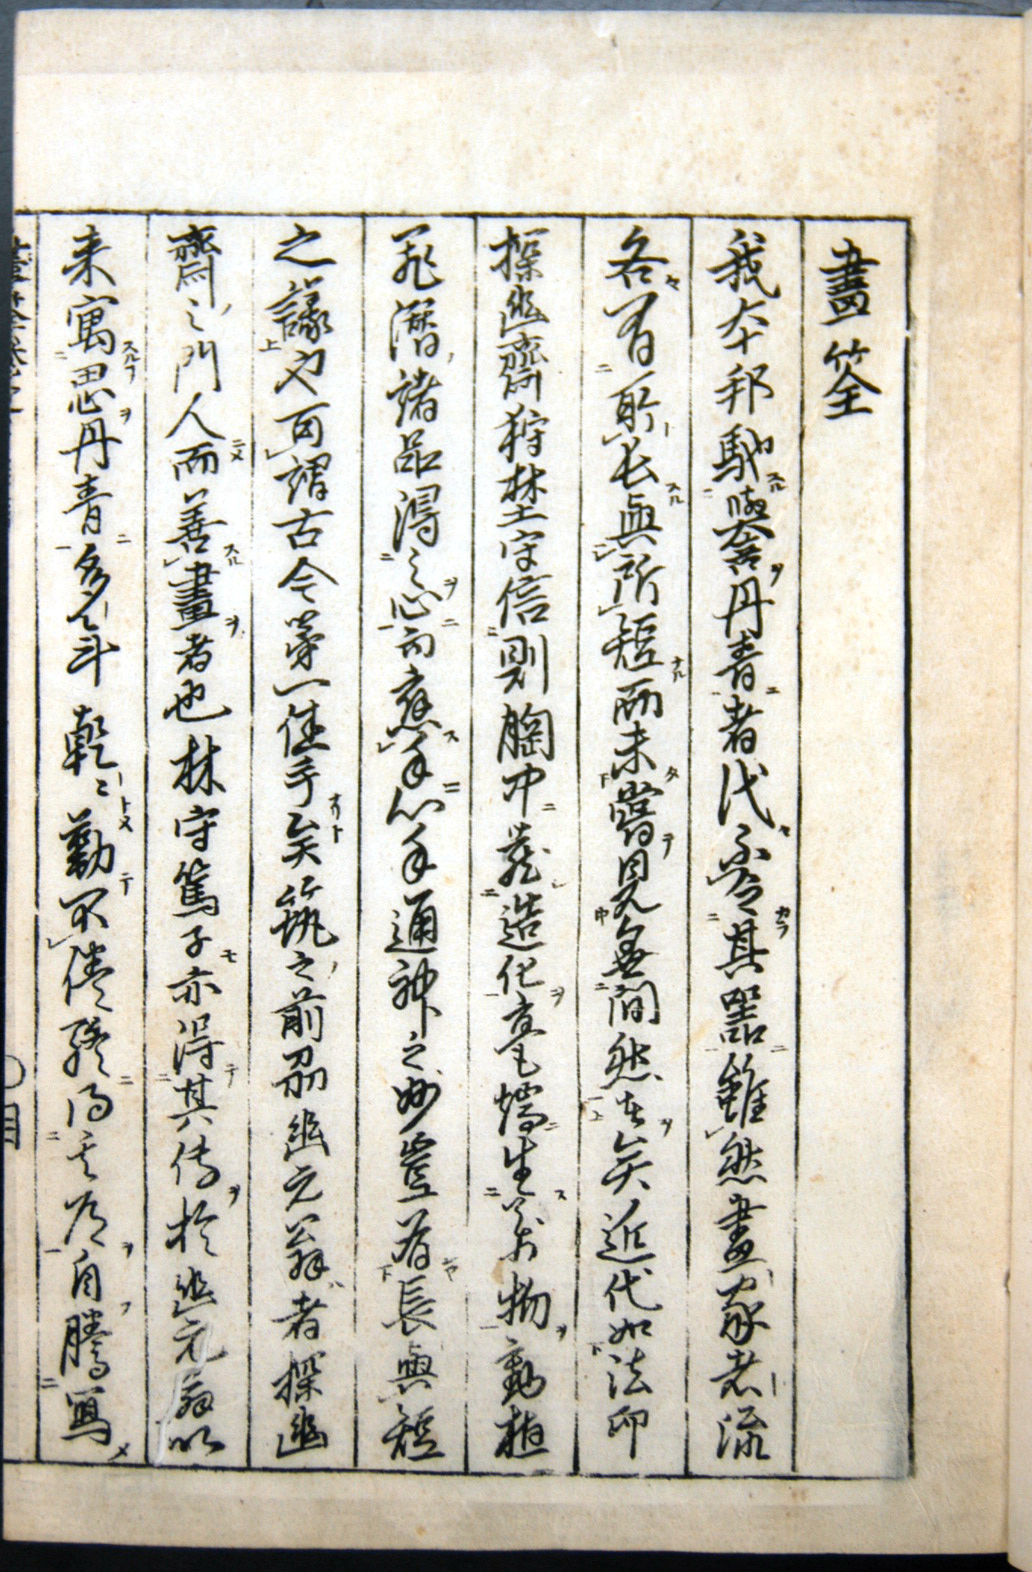 畫筌
我本邦馳譽丹青者代不乏其器雖然畫家者流
各有所長與所短而未嘗見無間然者矣近代如法印
探幽齋狩埜守信則胸中藏造化毫端生萬物動植
飛潛諸品得之心而應手心手通神之妙豈有長與短
之議乎可謂古今第一佳手矣筑之前刕幽元翁者探幽
齋之門人而善畫者也林守篤子亦得其傳於幽元翁以
来寓思丹青多年乾乾勤不倦終得其道自騰寫